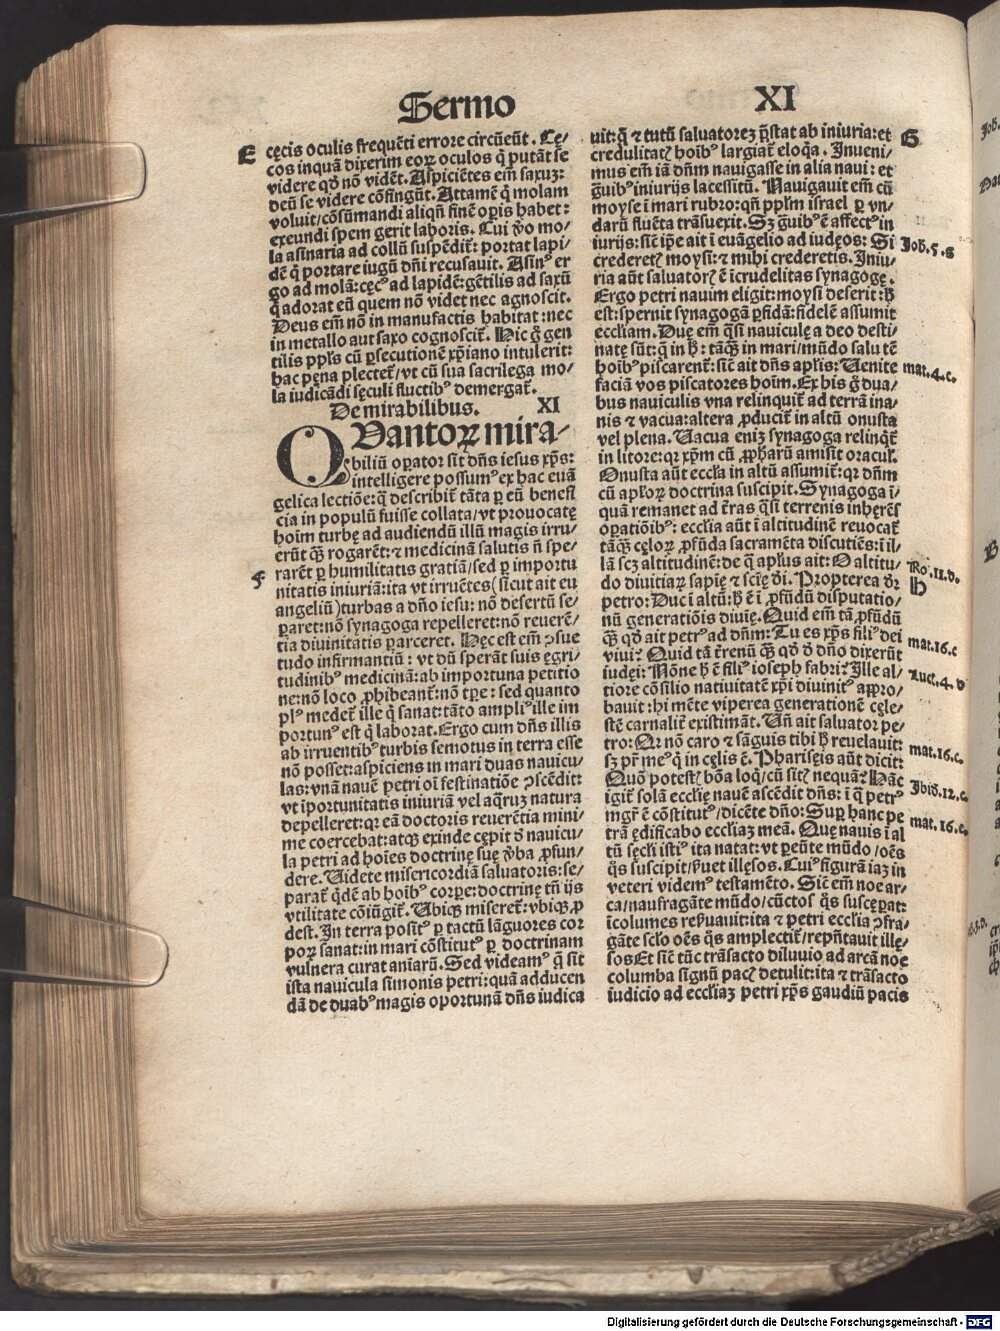 Sermo XI
E
cęcis oculis frequẽti errore circũeũt. Cę⸗
cos inquã dixerim eoꝝ oculos q̃ putãt se
videre qđ nõ vidẽt. Aspiciẽtes em̃ saxuʒ:
deũ se videre cõfingũt. Attamẽ q̃ molam
voluit/cõsũmandi aliqñ finẽ oꝑis habet:
exeundi spem gerit laboris. Cui ṽo mo⸗
la asinaria ad collũ suspẽdit̃: portat lapi⸗
dẽ q̃ portare iugũ dñi recusauit. Asinꝰ er
go ad molã: cęcꝰ ad lapidẽ: gẽtilis ad saxũ
q̃ adorat eũ quem nõ videt nec agnoscit.
Deus em̃ nõ in manufactis habitat: nec
in metallo aut saxo cognoscit̃. Hic g̃ gen
tilis pp̃ls cũ ꝑsecutionẽ xp̃iano intulerit:
hac pęna plectet̃/vt cũ sua sacrilega mo⸗
la iudicãdi sęculi fluctibꝰ demergat̃.
De mirabilibus. XI
QVantoꝝ mira⸗
biliũ oꝑator sit dñs iesus xp̃s:
intelligere possumꝰ ex hac euã
gelica lectiõe: q̃ describit̃ tãta ꝑ eũ benefi
cia in populũ fuisse collata/vt prouocatę
hoim̃ turbę ad audiendũ illũ magis irru⸗
erũt q̃ꝫ rogarẽt: ⁊ medicinã salutis ñ spe⸗
F
rarẽt ꝑ humilitatis gratiã/sed ꝑ importu
nitatis iniuriã: ita vt irruẽtes (sicut ait eu
angeliũ) turbas a dño iesu: nõ desertũ se⸗
ꝑaret: nõ synagoga repelleret: nõ reuerẽ⸗
tia diuinitatis ꝑarceret. Hęc est em̃ ↄsue
tudo infirmantiũ: vt dũ sperãt suis ęgri⸗
tudinibꝰ medicinã: ab importuna petitio
ne: nõ loco ꝓhibeant̃: nõ tꝑe: sed quanto
plꝰ medet̃ ille q̃ sanat: tãto ampliꝰ ille im
portunꝰ est q̃ laborat. Ergo cum dñs illis
ab irruentibꝰ turbis semotus in terra esse
nõ posset: aspiciens in mari duas nauicu⸗
las: vnã nauẽ petri oĩ festinatiõe ↄscẽdit:
vt ĩportunitatis iniuriã vel aq̃ꝝ natura
depelleret: qꝛ eã doctoris reuerẽtia mini⸗
me coercebat: atqꝫ exinde cępit đ nauicu⸗
la petri ad hoĩes doctrinę suę ṽba ꝓfun⸗
dere. Uidete misericordiã saluatoris: se⸗
parat̃ q̃dẽ ab hoibꝰ corꝑe: doctrinę tñ ijs
vtilitate cõiũgit̃. Ubiqꝫ miseret̃: vbiqꝫ ꝓ
dest. In terra positꝰ ꝑ tactũ lãguores cor
poꝝ sanat: in mari cõstitutꝰ ꝑ doctrinam
vulnera curat aniarũ. Sed videamꝰ q̃ sit
ista nauicula simonis petri: quã adducen
dã de duabꝰ magis oportunã dñs iudica
uit: q̃ ⁊ tutũ saluatoreʒ p̃stat ab iniuria: et
G
credulitatẽ hoibꝰ largiat̃ eloq̃a. Inueni⸗
mus em̃ iã dñm nauigasse in alia naui: et
g̃uibꝰ iniurijs lacessitũ. Nauigauit em̃ cũ
moyse ĩ mari rubro: qñ pplm israel ꝑ vn⸗
darũ fluẽta trãsuexit. Sʒ g̃uibꝰ ẽ affectꝰ in
iurijs: sic̃ ip̃e ait ĩ euãgelio ad iudęos: Si
Joh̃.5.g
crederetꝭ moysi: ⁊ mihi crederetis. Iniu⸗
ria aũt saluatorꝭ ẽ ĩcrudelitas synagogę.
Ergo petri nauim eligit: moysi deserit: h̃
est: spernit synagogã ꝑfidã: fidelẽ assumit
eccl̃iam. Duę em̃ q̃si nauiculę a deo desti⸗
natę sũt: q̃ in h̃: tãqꝫ in mari/mũdo salutẽ
hoibꝰ piscarent̃: sic̃ ait dñs apl̃is: Uenite
mat.4.c.
faciã vos piscatores hoim̃. Ex his g̃ dua⸗
bus nauiculis vna relinquit̃ ad terrã ina⸗
nis ⁊ vacua: altera ꝓducit̃ in altũ onusta
vel plena. Uacua enĩʒ synagoga relinq̃t̃
in litore: qꝛ xp̃m cũ ꝓph̃arũ amisit oracul̃.
Onusta aũt eccl̃ia in altũ assumit̃: qꝛ dñm
cũ apl̃oꝝ doctrina suscipit. Synagoga ĩ⸗
quã remanet ad t̃ras q̃si terrenis inhęrẽs
oꝑatiõibꝰ: eccl̃ia aũt ĩ altitudinẽ reuocat̃
tãqꝫ cęloꝝ ꝓfũda sacramẽta discutiẽs: ĩ il⸗
lã scʒ altitudinẽ: de q̃ apl̃us ait: O altitu⸗
Ro.11.d.
do diuitiaꝝ sapię ⁊ scię dĩ. Propterea dr̃
H
petro: Duc ĩ altũ: h̃ ẽ ĩ ꝓfũdũ disputatio⸗
nũ generatiõis diuię. Quid em̃ tã ꝓfũdũ
q̃ꝫ qđ ait petrꝰ ad dñm: Tu es xp̃s filiꝰ dei
mat.16.c
viui? Quid tã t̃renũ q̃ꝫ qđ đ dño dixerũt
iudęi: Nõne h̃ ẽ filiꝰ ioseph fabri? Ille al⸗
Luc.4.d
tiore cõsilio natiuitatẽ xp̃i diuinitꝰ appro⸗
bauit: hi mẽte viperea generationẽ cęle⸗
stẽ carnalit̃ existimãt. Uñ ait saluator pe⸗
tro: Qꝛ nõ caro ⁊ sãguis tibi h̃ reuelauit:
mat.16.c.
sʒ pr̃ meꝰ q̃ in cęlis ẽ. Pharisęis aũt dicit:
Quõ potestꝭ bõa loq̃/cũ sitꝭ nequã? Hãc
Ibid.12.c.
igit̃ solã eccl̃ię nauẽ ascẽdit dñs: ĩ q̃ petrꝰ
mgr̃ ẽ cõstitutꝰ/dicẽte dño: Suꝑ hanc pe
mat.16.c.
trã ędificabo eccl̃iaʒ meã. Quę nauis ĩ al
tũ sęcl̃i istiꝰ ita natat: vt ꝑeũte mũdo/oẽs
q̃s suscipit/ẽuet illęsos. Cuiꝰ figurã iaʒ in
veteri videmꝰ testamẽto. Sic̃ em̃ noe ar⸗
ca/naufragãte mũdo/cũctos q̃s suscęꝑat:
ĩcolumes reẽuauit: ita ⁊ petri eccl̃ia ↄfra⸗
gãte sclo oẽs q̃s amplectit̃/repñtauit illę⸗
sos Et sic̃ tũc trãsacto diluuio ad arcã noe
columba signũ pacꝭ detulit: ita ⁊ trãsacto
iudicio ad eccl̃iaʒ petri xp̃s gaudiũ pacis
Digitalisierung gefördert durch die Deutsche Forschungsgemeinschaft - DFG